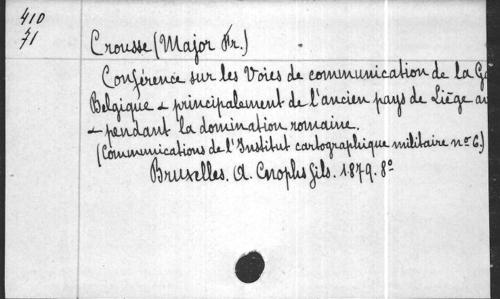 410
71
Crousse (Major Fr.)
Conférence sur les Voies de communication de la
Belgique & principalement de l'ancien pays de Liége
& pendant la domination romaine.
(Communications de l'Institut cartographique militaire nº 6.)
Bruxelles. A. Cnophs fils. 1879. 8º